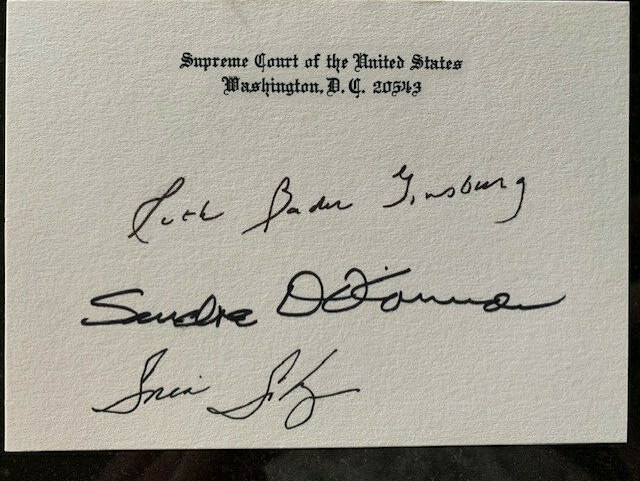 Supreme Court of the United States
Washington, D. C. 20543
Ruth Bader Ginsburg
Sandra D O'Connor
Sonia